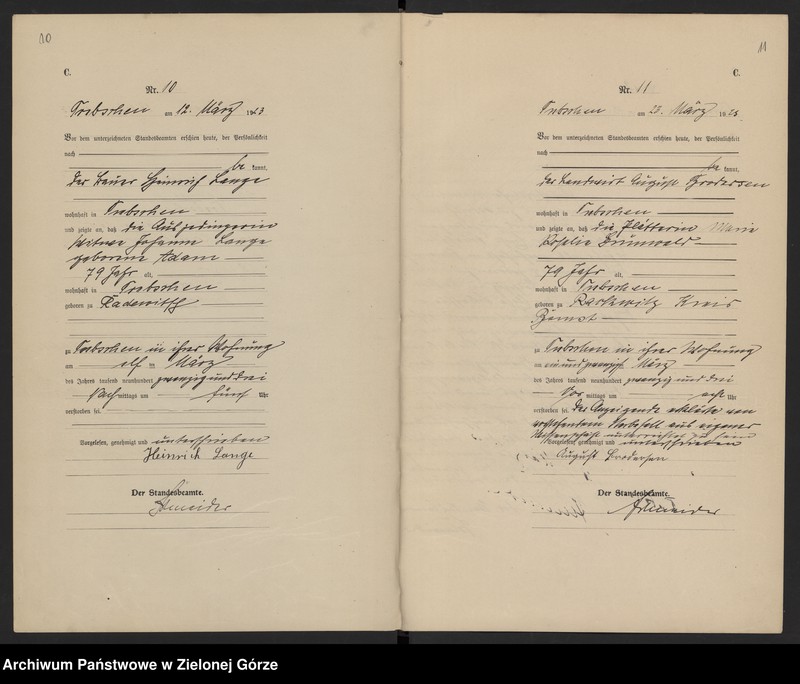 10
C.
Nr. 10
Trebschen am 12. März 1923
Vor dem unterzeichneten Standesbeamten erschien heute, der Persönlichkeit
nach
be kannt,
der Bauer Heinrich Lange
wohnhaft in Trebschen
und zeigte an, daß die Ausgedingerin
Witwe Johanne Lange
geborene Adam
79 Jahr alt,
wohnhaft in Trebschen
geboren zu Radewitsch
zu Trebschen in ihrer Wohnung
am elf ten März
des Jahres tausend neunhundert zwanzig und drei
Nach mittags um fünf Uhr
verstorben sei.
Vorgelesen, genehmigt und unterschrieben
Heinrich Lange
Der Standesbeamte.
Schneider
11
C.
Nr. 11
Trebschen am 23. März 1923
Vor dem unterzeichneten Standesbeamten erschien heute, der Persönlichkeit
nach
be kannt,
der Landwirt August Brodersen
wohnhaft in Trebschen
und zeigte an, daß die Plätterin Marie
Rosalie Grunwald
79 Jahr alt,
wohnhaft in Trebschen
geboren zu Kreis
Bomst
zu Trebschen in ihrer Wohnung
am ein und zwanzigsten März
des Jahres tausend neunhundert zwanzig und drei
Vor mittags um acht Uhr
verstorben sei. Der Anzeigende erklärte von
vorstehendem Sterbefall aus eigener
Wissenschaft unterrichtet zu sein
Vorgelesen, genehmigt und unterschrieben
August Brodersen
Der Standesbeamte.
Schneider
Archiwum Państwowe w Zielonej Górze